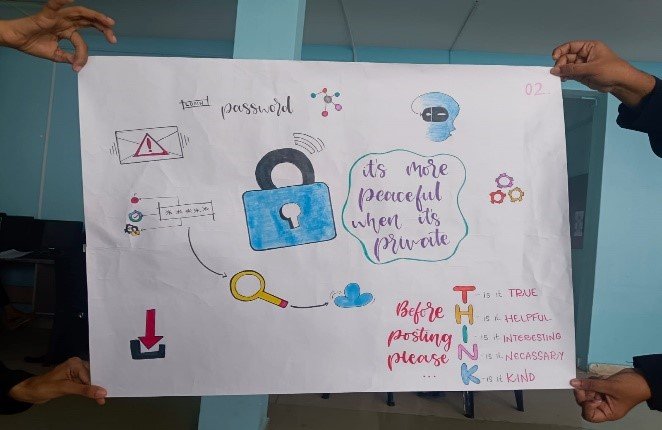 02
password
it's more
peaceful
when it's
private
*****
Before
posting
please
...
THINK
T - is it TRUE
H - is it HELPFUL
I - is it INTERESTING
N - is it NECASSARY
K - is it KIND